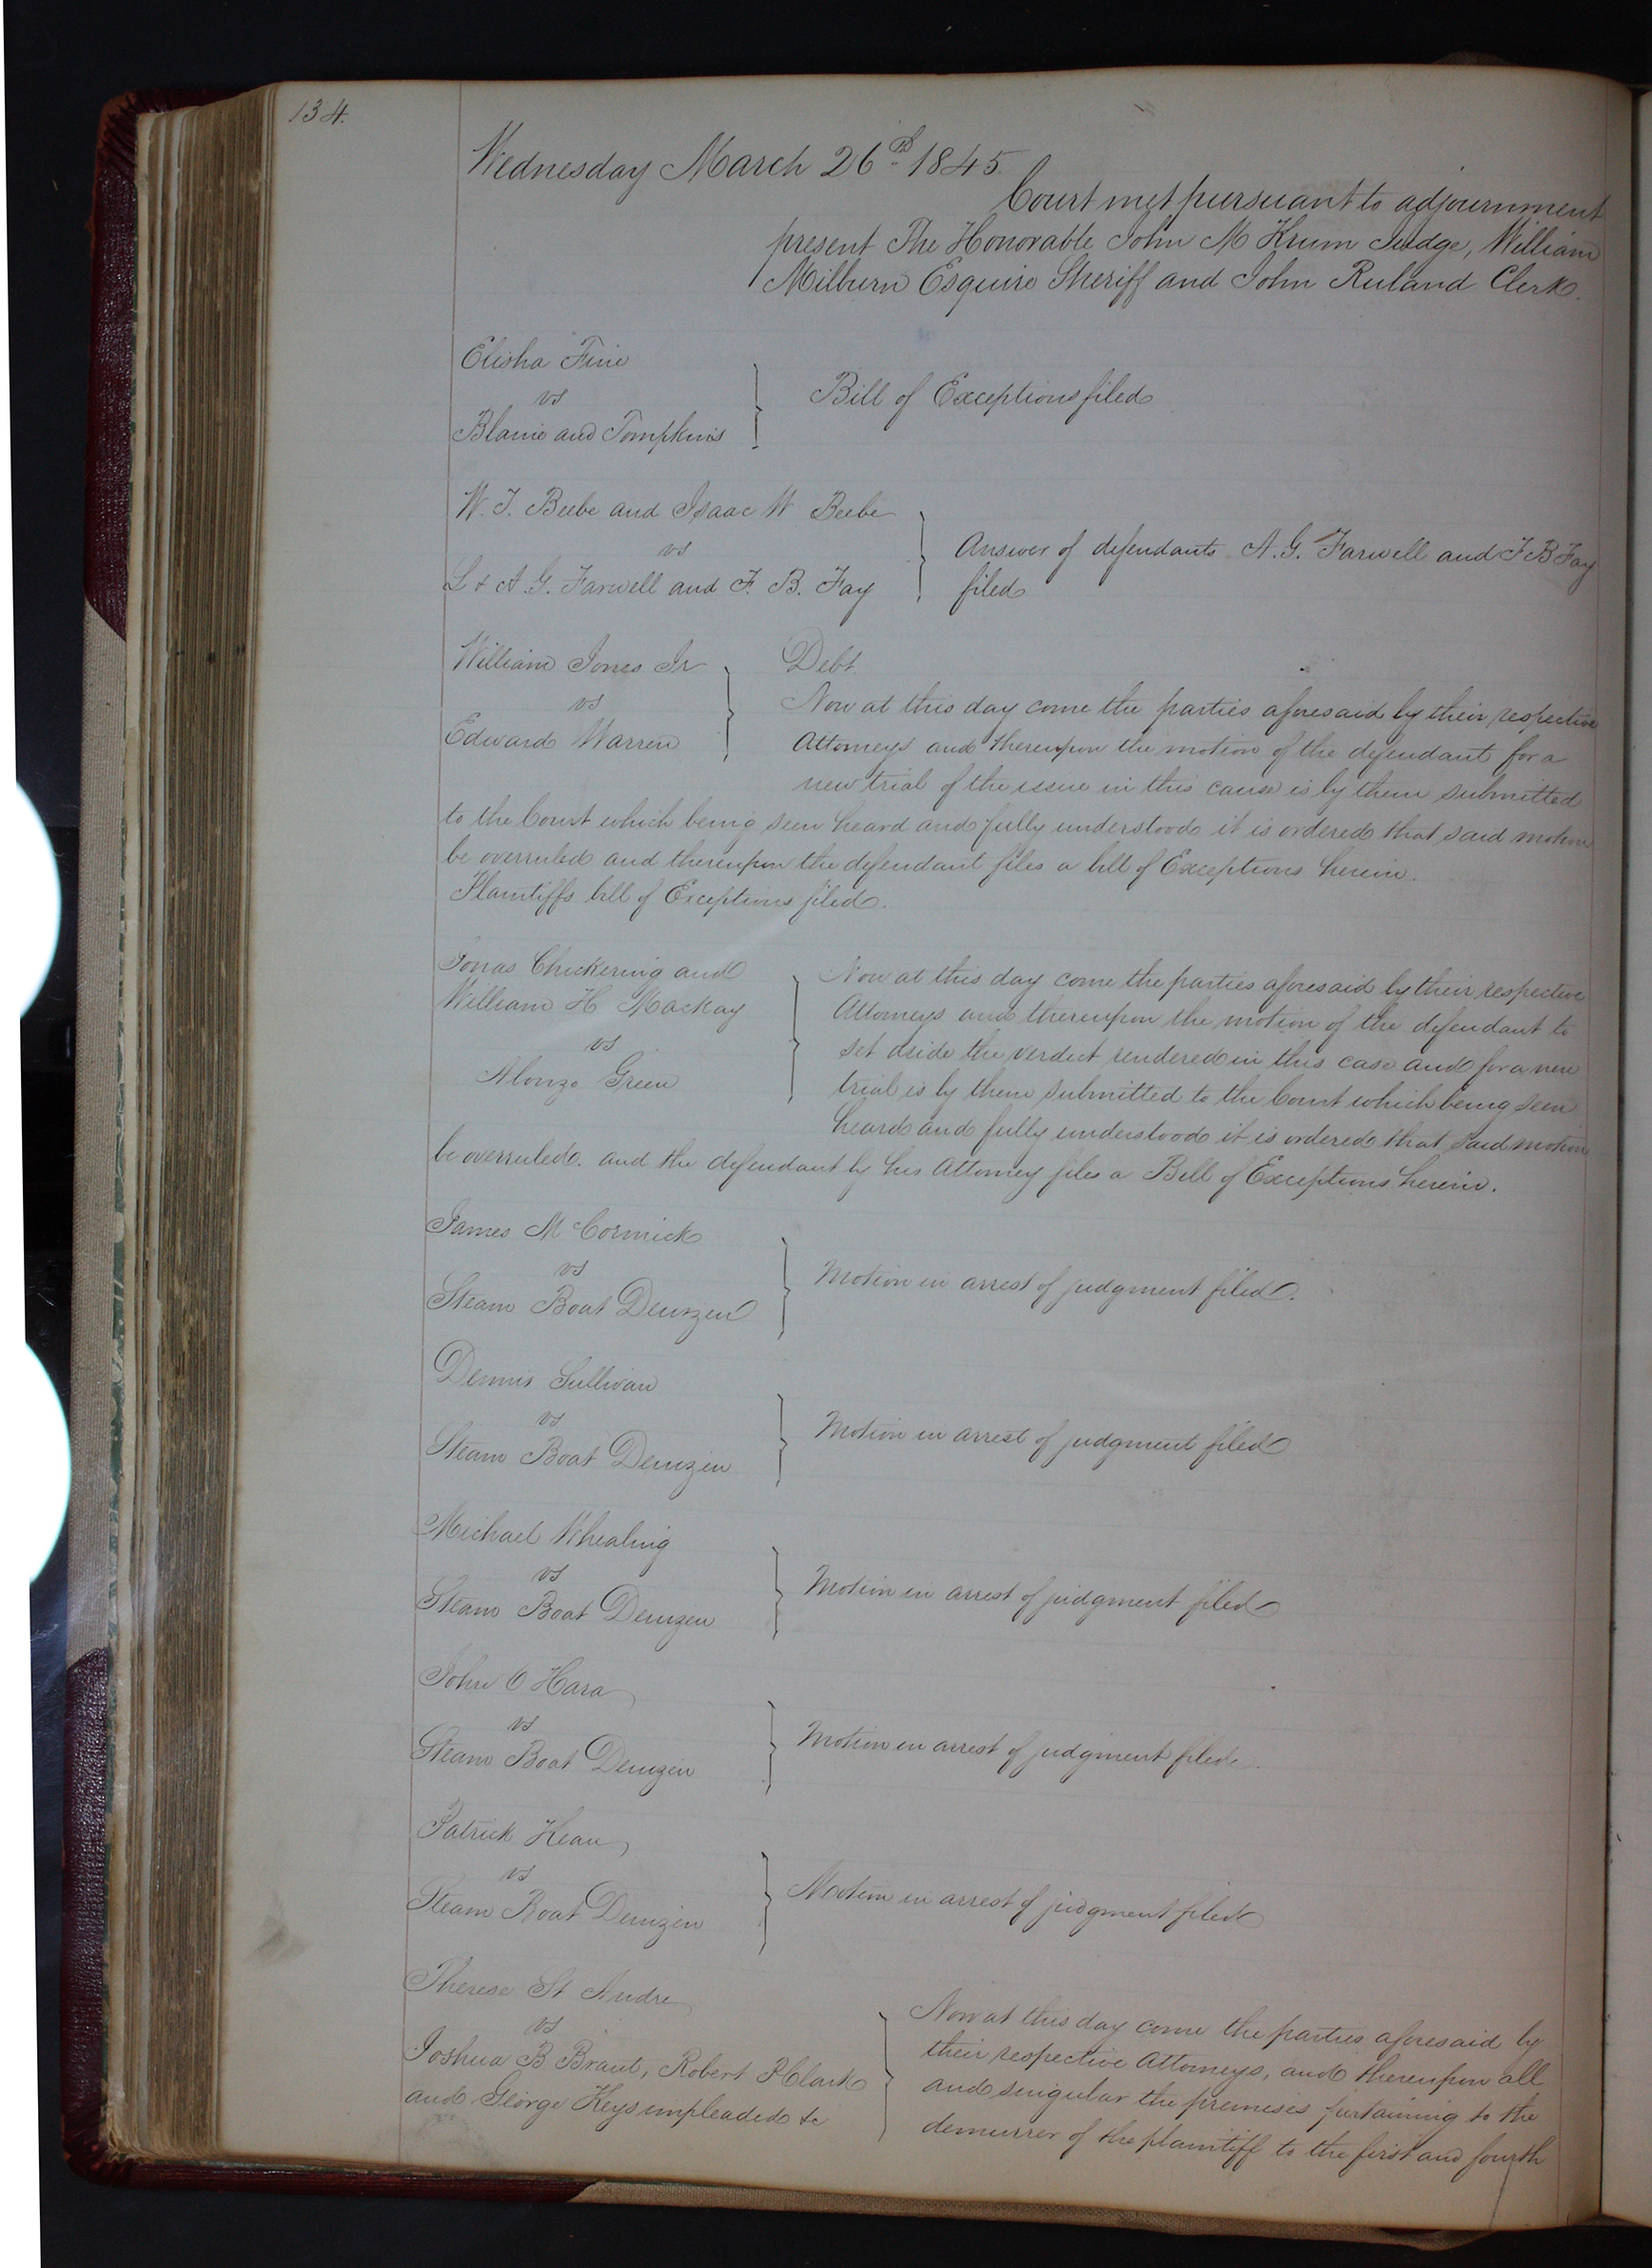 134.
Wednesday March 26th 1845.
Court met pursuant to adjournment
present The Honorable John M Krum Judge, William
Milburn Esquire Sheriff and John Ruland Clerk.
Elisha Fine
vs
Blaine and Tompkins
Bill of Exceptions filed
W. T. Beebe and Isaac W Beebe
vs
L & A. G. Farwell and F. B. Fay
Answer of defendants A. G. Farwell and F B Fay
filed
William Jones Jr
vs
Edward Warren
Debt.
Now at this day come the parties aforesaid by their respective
Attorneys and thereupon the motion of the defendant for a
new trial of the issue in this cause is by them submitted
to the Court which being seen heard and fully understood it is ordered that said motion
be overruled and thereupon the defendant files a bill of Exceptions herein.
Plaintiffs bill of Exceptions filed.
Jonas Chickering and
William H Mackay
vs
Alonzo Green
Now at this day come the parties aforesaid by their respective
Attorneys and thereupon the motion of the defendant to
set aside the verdict rendered in this case and for a new
trial is by them submitted to the Court which being seen
heard and fully understood it is ordered that said motion
be overruled. and the defendant by his Attorney files a Bill of Exceptions herein.
James McCormick
vs
Steam Boat Denizen
Motion in arrest of judgment filed.
Dennis Sullivan
vs
Steam Boat Denizen
Motion in arrest of judgment filed
Michael Whealing
vs
Steam Boat Denizen
Motion in arrest of judgment filed
John O Hara
vs
Steam Boat Denizen
Motion in arrest of judgment filed.
Patrick Kean
vs
Steam Boat Denizen
Motion in arrest of judgment filed
Therese St Andre
vs
Joshua B Brant, Robert P Clark
and George Keys impleaded &c
Now at this day come the parties aforesaid by
their respective Attorneys, and thereupon all
and singular the premises pertaining to the
demurrer of the plaintiff to the first and fourth